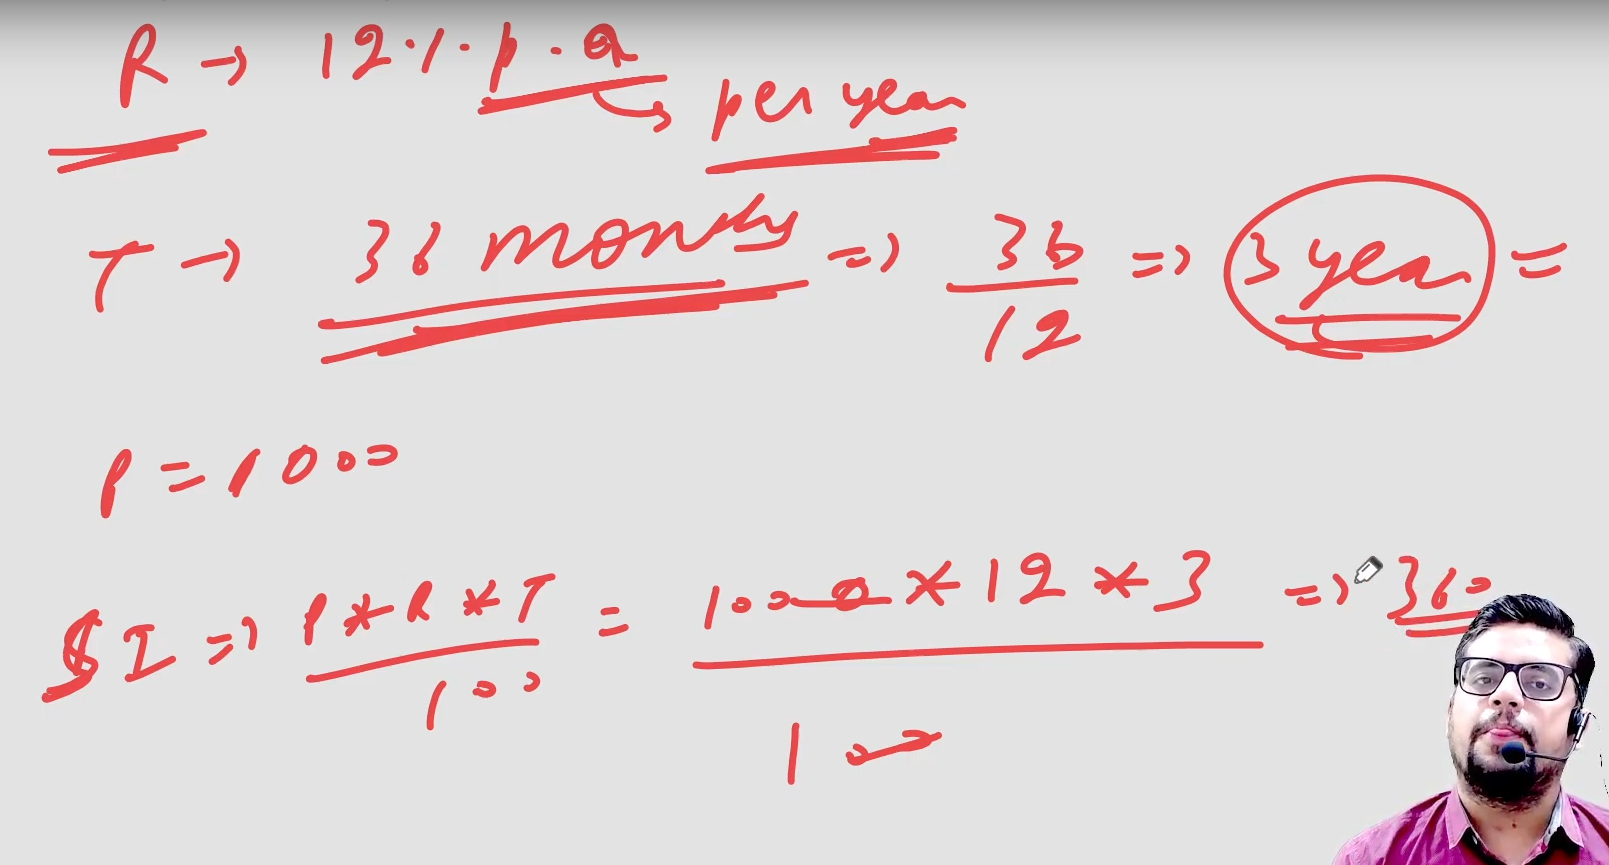 R → 12% p.a → per year
T → 36 months => 36/12 => 3 year =
P = 1000
SI => P*R*T/100 = 1000*12*3/100 => 360